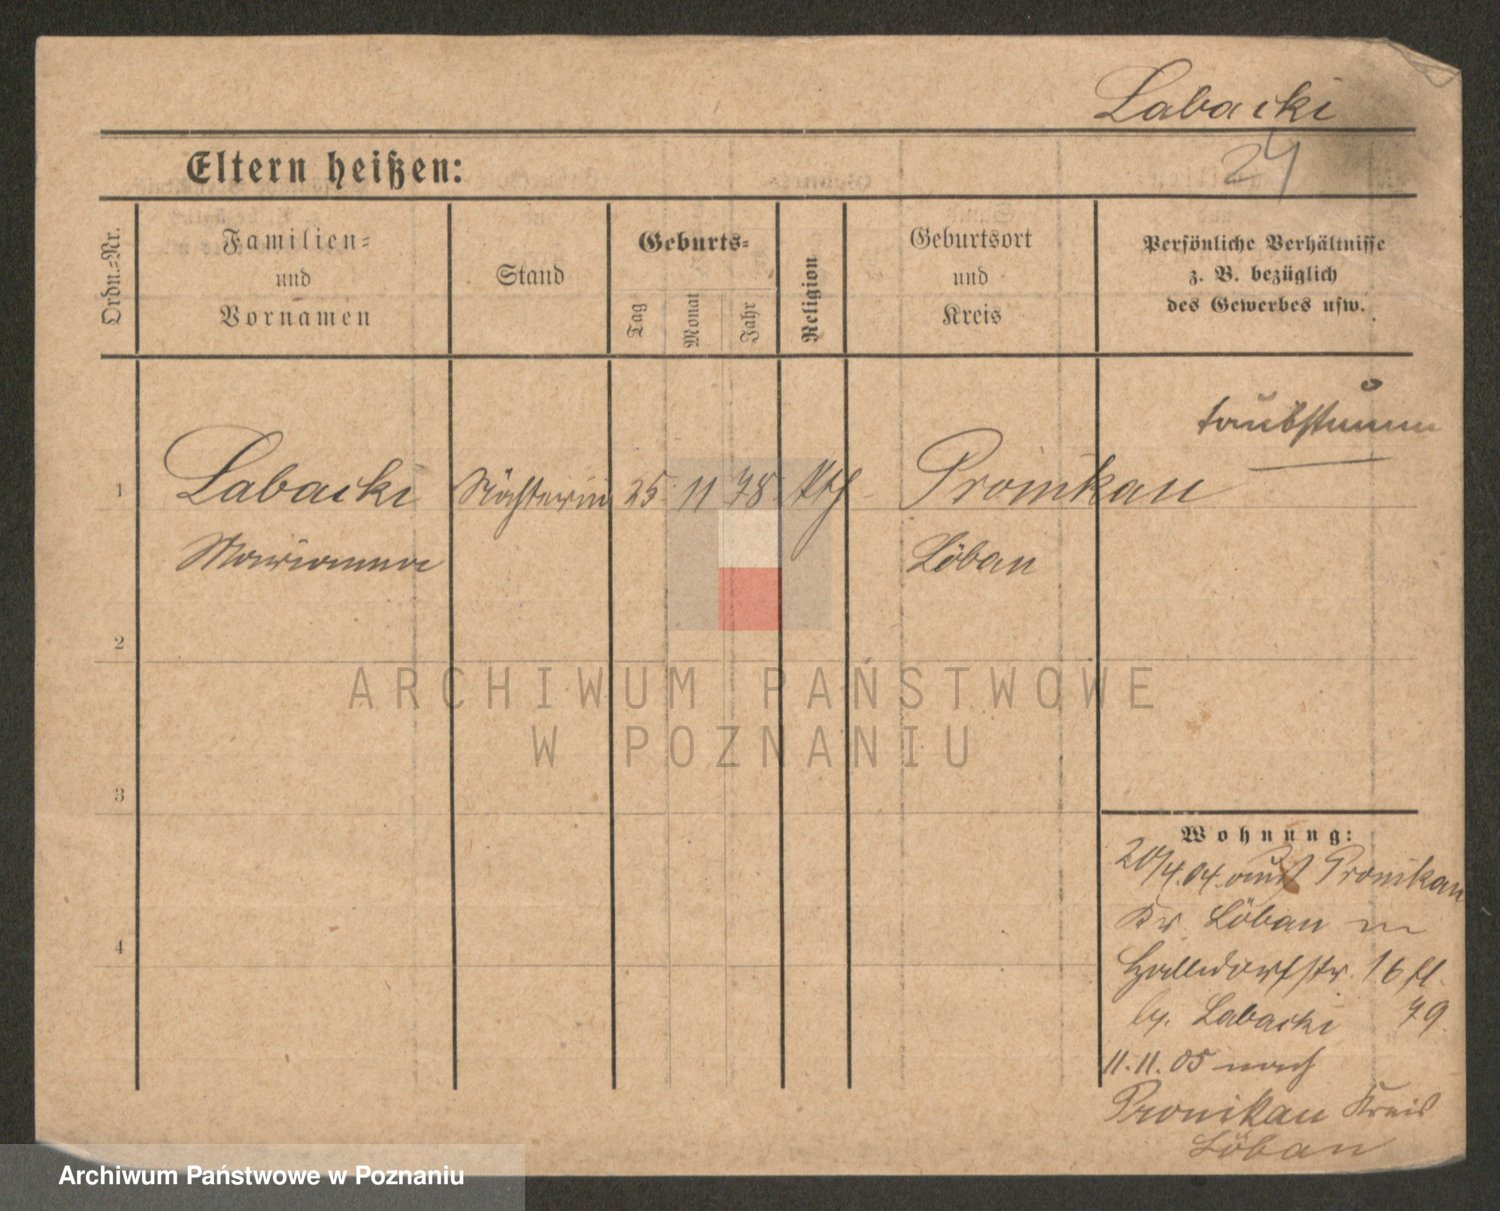 Labacki
24
Eltern heißen:
Ordn.-Nr.
Familien-
und
Vornamen
Stand
Geburts-
Tag
Monat
Jahr
Religion
Geburtsort
und
Kreis
Persönliche Verhältnisse
z. B. bezüglich
des Gewerbes usw.
taubstumm
1 Labacki Nähterin 25 11 78 kth Pronikau
Marianna Löbau
2
3
4
Wohnung:
20/4.04. aus Pronikau
Kr. Löbau
Halldorfstr. 16
b/. Labacki 79.
11.11.05 nach
Pronikau Kreis
Löbau
ARCHIWUM PAŃSTWOWE
W POZNANIU
Archiwum Państwowe w Poznaniu